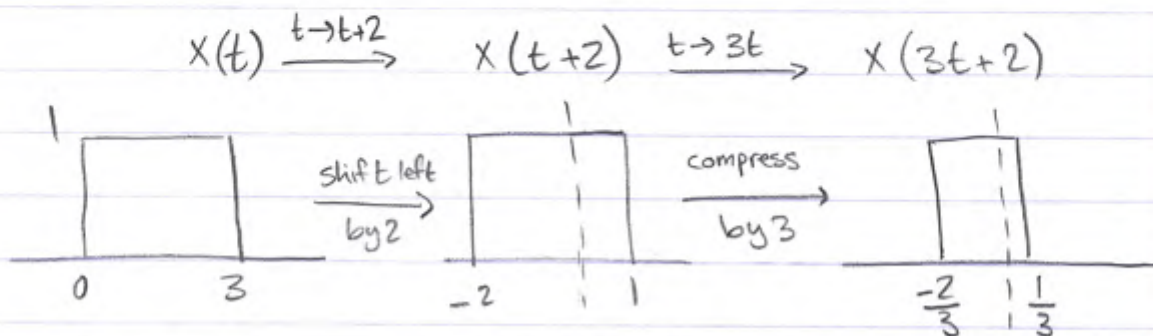 x(t) t→t+2 x(t+2) t→3t x(3t+2)
1
shift left
by 2
compress
by 3
0 3 -2 1 -2/3 1/3